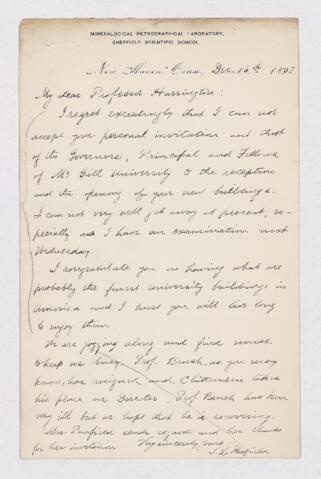 MINERALOGICAL PETROGRAPHICAL LABORATORY,
SHEFFIELD SCIENTIFIC SCHOOL.
New Haven, Conn., Dec. 16th 189
My dear Professor Harrington:
I regret exceedingly that I can not
accept your personal invitation and that
of the Governors, Principal and Fellows
of McGill University to the reception
and the opening of your new buildings.
I can not very well get away at present, es-
pecially as I have an examination next
Wednesday.
I congratulate you on having what are
probably the finest university buildings in
America and I trust you will live long
to enjoy them.
We are jogging along and find much
to keep us busy. Prof. Brush, as you may
know, has resigned and Chittenden takes
his place as Director. Prof. Brush has been
very ill but we hope that he is recovering.
Mrs. Penfield sends regards and her thanks
for her invitation. Very sincerely yours
S. L. Penfield.